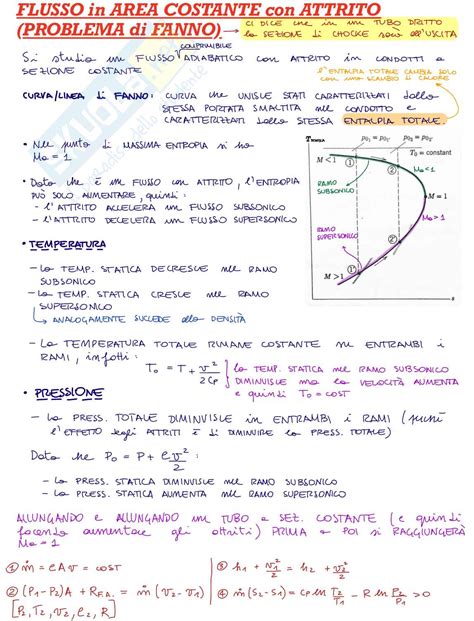 FLUSSO in AREA COSTANTE con ATTRITO
(PROBLEMA di FANNO)
CI DICE che in un TUBO DRITTO
la SEZIONE di CHOCKE sarà all'USCITA
COMPRIMIBILE
Si studia un FLUSSO ADIABATICO con ATTRITO in CONDOTTI a
SEZIONE COSTANTE
l'ENTALPIA TOTALE CAMBIA SOLO
CON uno SCAMBIO di CALORE
CURVA/LINEA di FANNO: CURVA che UNISCE STATI CARATTERIZZATI dalla
STESSA PORTATA SMALTITA nel CONDOTTO e
CARATTERIZZATI dalla STESSA ENTALPIA TOTALE.
• Nel punto di MASSIMA ENTROPIA si ha
Ma = 1
• Dato che è un FLUSSO con ATTRITO, l'ENTROPIA
PUÒ SOLO AUMENTARE, quindi:
- l'ATTRITO ACCELERA un FLUSSO SUBSONICO
- l'ATTRITO DECELERA un FLUSSO SUPERSONICO
p₀₁ = p₀₁' p₀₂ = p₀₂'
T₀ = constant
M<1
1
2
RAMO
SUBSONICO
M = 1
Ma>1
RAMO
SUPERSONICO
2'
1'
M>1
s
• TEMPERATURA
- la TEMP. STATICA DECRESCE nel RAMO
SUBSONICO
- la TEMP. STATICA CRESCE nel RAMO
SUPERSONICO
↳ ANALOGAMENTE SUCCEDE alla DENSITÀ
- La TEMPERATURA TOTALE RIMANE COSTANTE in ENTRAMBI i
RAMI, infatti:
T₀ = T + v²/2cp
la TEMP. STATICA nel RAMO SUBSONICO
DIMINUISCE ma la VELOCITÀ AUMENTA
e quindi T₀ = COST
• PRESSIONE
- La PRESS. TOTALE DIMINUISCE in ENTRAMBI i RAMI (poiché
l'EFFETTO degli ATTRITI è di DIMINUIRE la PRESS. TOTALE)
Dato che P₀ = P + ρv²/2:
- La PRESS. STATICA DIMINUISCE nel RAMO SUBSONICO
- La PRESS. STATICA AUMENTA nel RAMO SUPERSONICO
ALLUNGANDO e ALLUNGANDO un TUBO a SEZ. COSTANTE (e quindi
facendo aumentare gli attriti) PRIMA o POI si RAGGIUNGERÀ
Ma = 1
① ṁ = ρAv = cost
③ h₁ + v₁²/2 = h₂ + v₂²/2
② (P₁-P₂)A + R = ṁ(v₂-v₁)
④ ṁ(s₂-s₁) = cp ln T₂/T₁ - R ln P₂/P₁ > 0
[P₂, T₂, v₂, ρ₂, R]